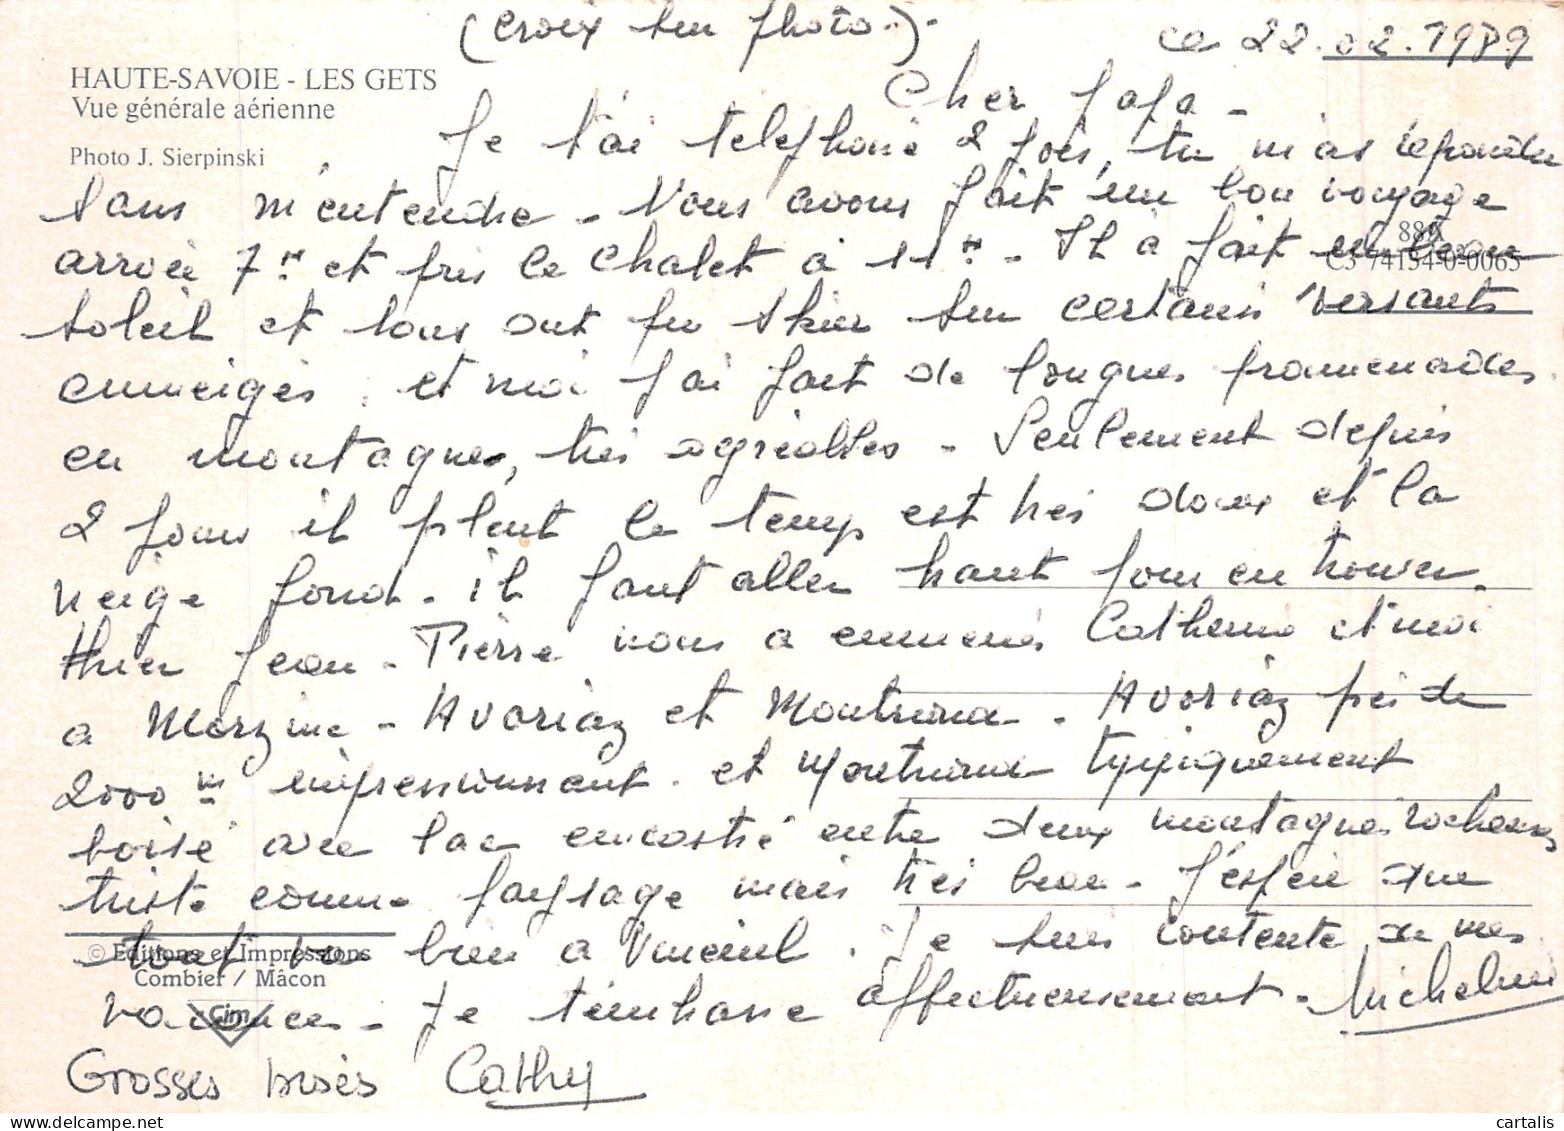 (croix sur photo..)-
ce 22.02.1989
HAUTE-SAVOIE - LES GETS
Vue générale aérienne
Photo J. Sierpinski
Cher papa -
Je t'ai telephoné 2 fois, tu m'as répondu
sans m'entendre - Nous avons fait un bon voyage
arrivée 7H et pris le chalet à 11H - Il a fait un beau
soleil et tous ont pu skier sur certains versants
enneigés, et moi j'ai fait de longues promenades
en montagnes, très agréables - Seulement depuis
2 jours il pleut le temps est très doux et la
neige fond. il faut aller haut pour en trouver.
Hier Jean-Pierre nous a emmenés Catherine et moi
a Morzine - Avoriaz et Montriond - Avoriaz près de
2000 m impressionnant. et Montriond typiquement
boisé avec lac encastré entre deux montagnes rocheuses
triste comme paysage mais très beau - J'espère que
tout va bien a Vineuil. Je suis contente de mes
vacances - Je t'embrasse affectueusement - Micheline
Grosses bises Cathy
886
C3 74134-0-0065
© Editions et Impressions
Combier / Mâcon
Cim